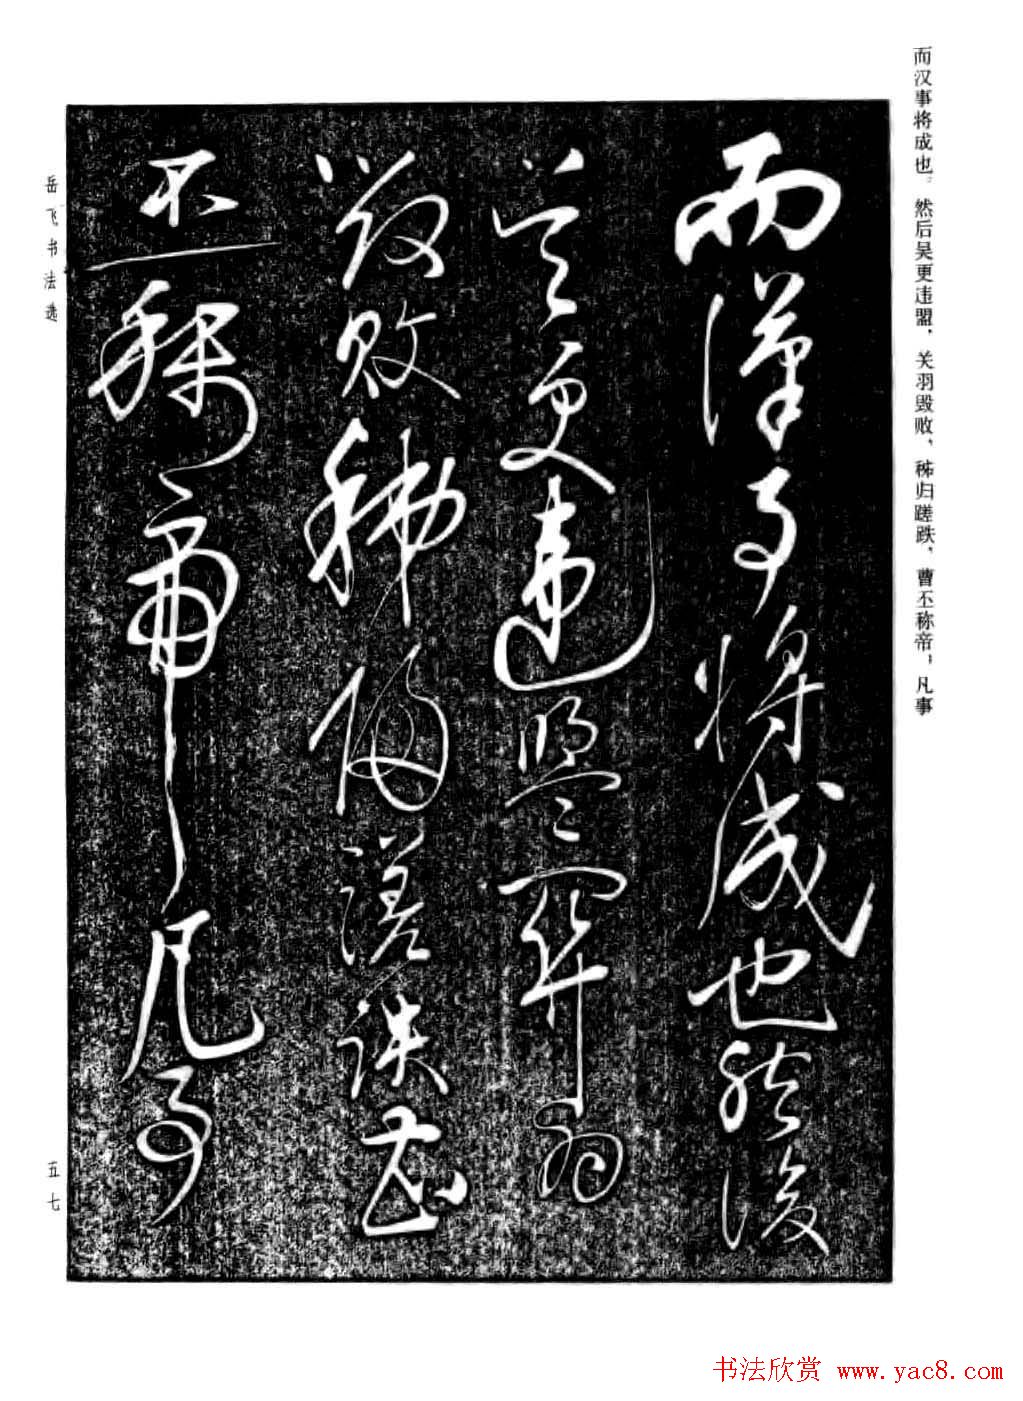 而汉事将成也。然后吴更违盟，关羽毁败，秭归蹉跌，曹丕称帝，凡事
而漢事将成也然後
吴更違盟関羽
毁败秭归蹉跌曹
丕称帝凡事
岳飞书法选
五七
书法欣赏 www.yac8.com